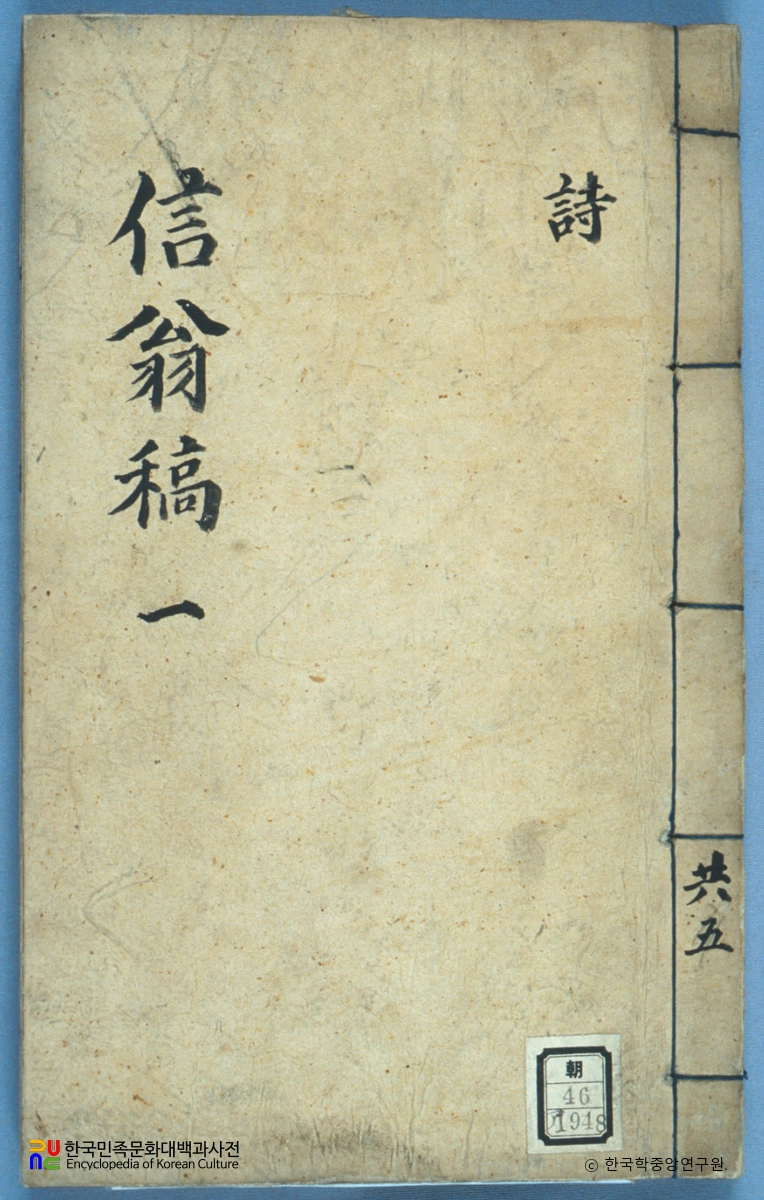 詩
信翁稿 一
共五
朝
46
1948
한국민족문화대백과사전
Encyclopedia of Korean Culture
ⓒ 한국학중앙연구원